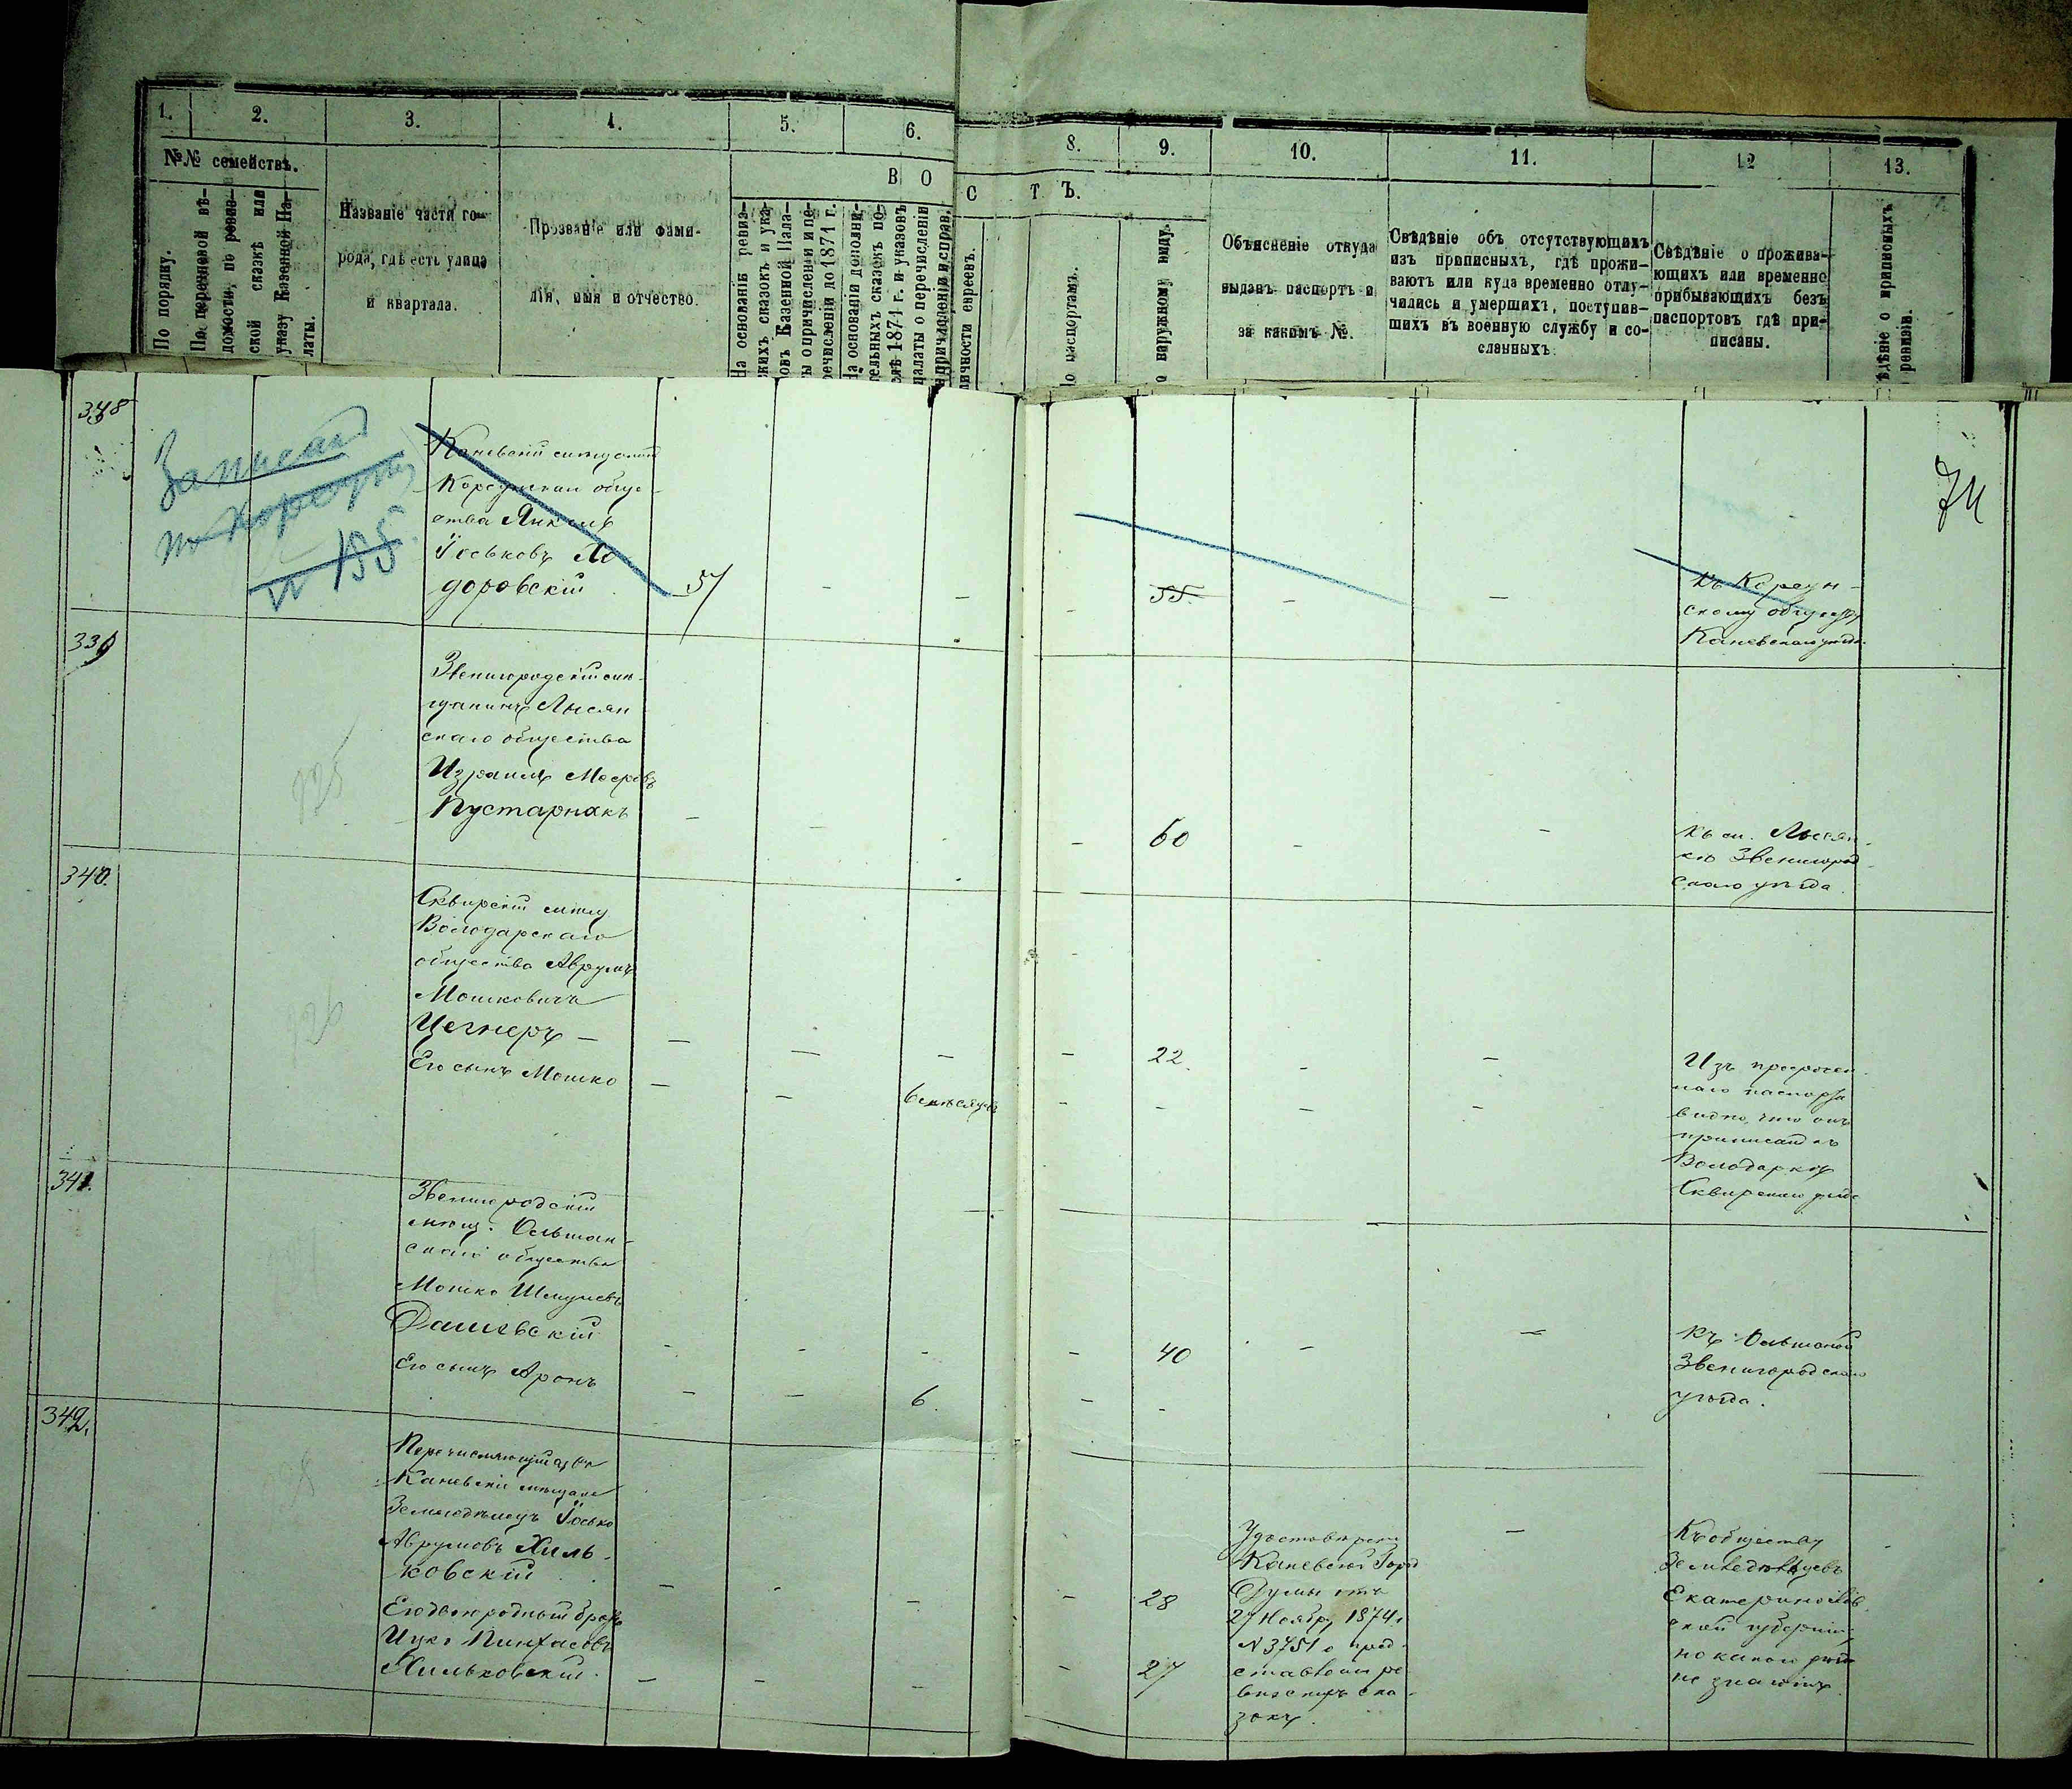 1. 2. 3. 4. 5. 6. 8. 9. 10. 11. 12 13.
№№ семействъ.
По порядку.
По перечневой вѣ-
домости, по ревиз-
ской сказкѣ или
указу Казенной Па-
латы.
Названіе части го-
рода, гдѣ есть улица
и квартала.
Прозваніе или фами-
лія, имя и отчество.
В О
С Т Ъ.
На основаніи ревиз-
скихъ сказокъ и ука-
зовъ Казенной Пала-
ты о причисленіи и пе-
речисленіи до 1874 г.
На основаніи дополни-
тельныхъ сказокъ по-
слѣ 1874 г. и указовъ
палаты о перечисленіи
и причисленіи и справ.
личности евреевъ.
По паспортамъ.
по наружному виду.
Объясненіе откуда
выданъ паспортъ и
за какимъ №.
Свѣдѣніе объ отсутствующихъ
изъ приписныхъ, гдѣ прожи-
ваютъ или куда временно отлу-
чились и умершихъ, поступив-
шихъ въ военную службу и со-
сланныхъ.
Свѣдѣніе о прожива-
ющихъ или временно
прибывающихъ безъ
паспортовъ гдѣ при-
писаны.
Свѣдѣніе о приписныхъ
ревизіи.
74
338
Записанъ
по Корсуну
№ 155
Каневскій мѣщанинъ
Корсунскаго обще-
ства Янкель
Іоськовъ Хо
доровскій
57
55.
Къ Корсун-
скому обществу
Каневскаго уѣзда
339
725
Звенигородскій мѣ-
щанинъ Лысян
скаго общества
Израиль Мееровъ
Пустарнакъ
60
Къ м. Лысян-
кѣ Звенигород
скаго уѣзда.
340.
726
Сквирскій мѣщ
Володарскаго
общества Аврумъ
Мошковичъ
Цегнеръ —
22.
Его сынъ Мошко
6 мѣсяцевъ
Изъ просрочен-
наго паспорта
видно, что онъ
приписанъ къ
Володаркѣ
Сквирскаго уѣзда
341.
Звенигородскій
мѣщ. Ольшан-
скаго общества
Мошко Шмулевъ
Дашевскій
40
Его сынъ Аронъ
6.
Къ Ольшаной
Звенигородскаго
уѣзда.
342.
Перечисляющійся въ
Каневскіе мѣщане
Земледѣлецъ Іосько
Аврумовъ Хиль-
ковскій
28
Его двоюродный братъ
Ицко Пинхасовъ
Хильковскій.
27
Удостовѣреніе
Каневской Город
Думы отъ
27 Ноября 1874 г.
№ 3751 о пред-
ставленіи ре
визскихъ ска-
зокъ.
Къ обществу
Земледѣльцевъ
Екатеринослав
ской губерніи,
но какого уѣзда
не знаютъ